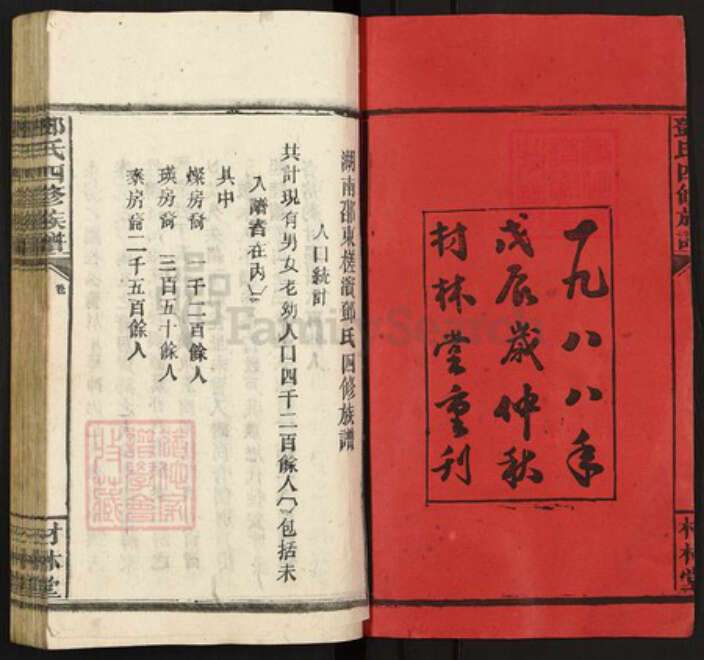 鄧氏四修族譜
一九八八年
戊辰歲仲秋
材林堂重刊
材林堂
湖南邵東槎濱鄧氏四修族譜
人口統計
共計現有男女老幼人口四千二百餘人(包括未
入譜者在內)
其中
燦房裔 一千二百餘人
瑛房裔 三百五十餘人
泰房裔二千五百餘人
鄧氏四修族譜
卷
材林堂
FamilySearch